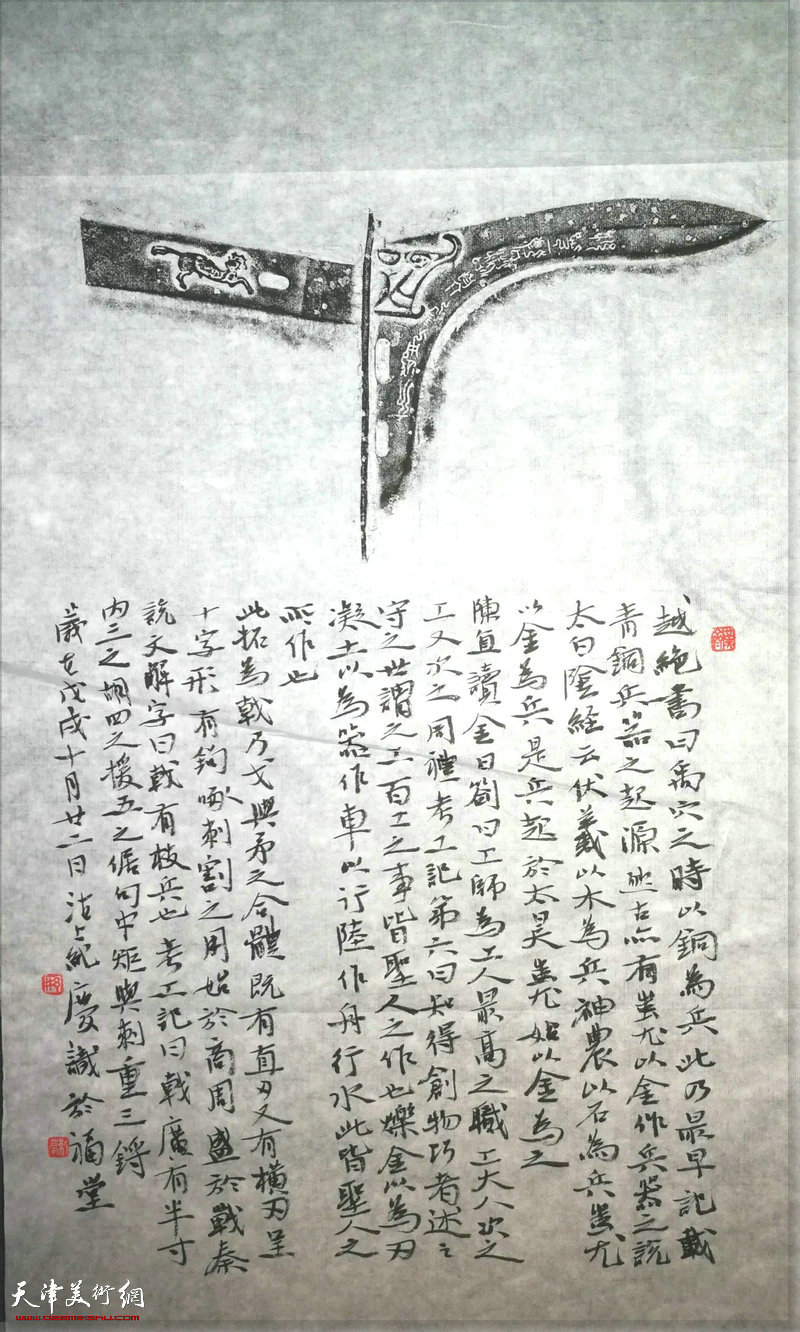 越絕書曰禹穴之時以銅為兵此乃最早記載
青銅兵器之起源遠古亦有蚩尤以金作兵器之說
太白陰經云伏羲以木為兵神農以石為兵蚩尤
以金為兵是兵起於太昊蚩尤始以金為之
陳直讀金日劄曰工師為工人最高之職工大人次之
工又次之周禮考工記第六曰知得創物巧者述之
守之世謂之工百工之事皆聖人之作也爍金以為刃
凝土以為器作車以行陸作舟行水此皆聖人之
所作也
此拓為戟乃戈與矛之合體既有直刃又有橫刃呈
十字形有鉤啄刺割之用始於商周盛於戰秦
說文解字曰戟有枝兵也考工記曰戟廣有半寸
內三之胡四之援五之倨句中矩與刺重三鋝
歲在戊戌十月廿二日沽上紀慶識於福堂
天津美術網